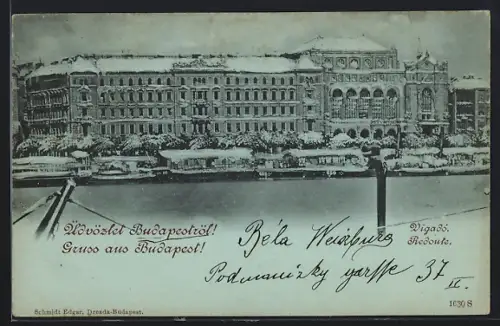 Üdvözlet Budapestről!
Gruss aus Budapest!
Vigadó.
Redoute.
Béla Weiszburg
Podmaniczky 37
II.
Schmidt Edgar, Dresda-Budapest.
1630 S